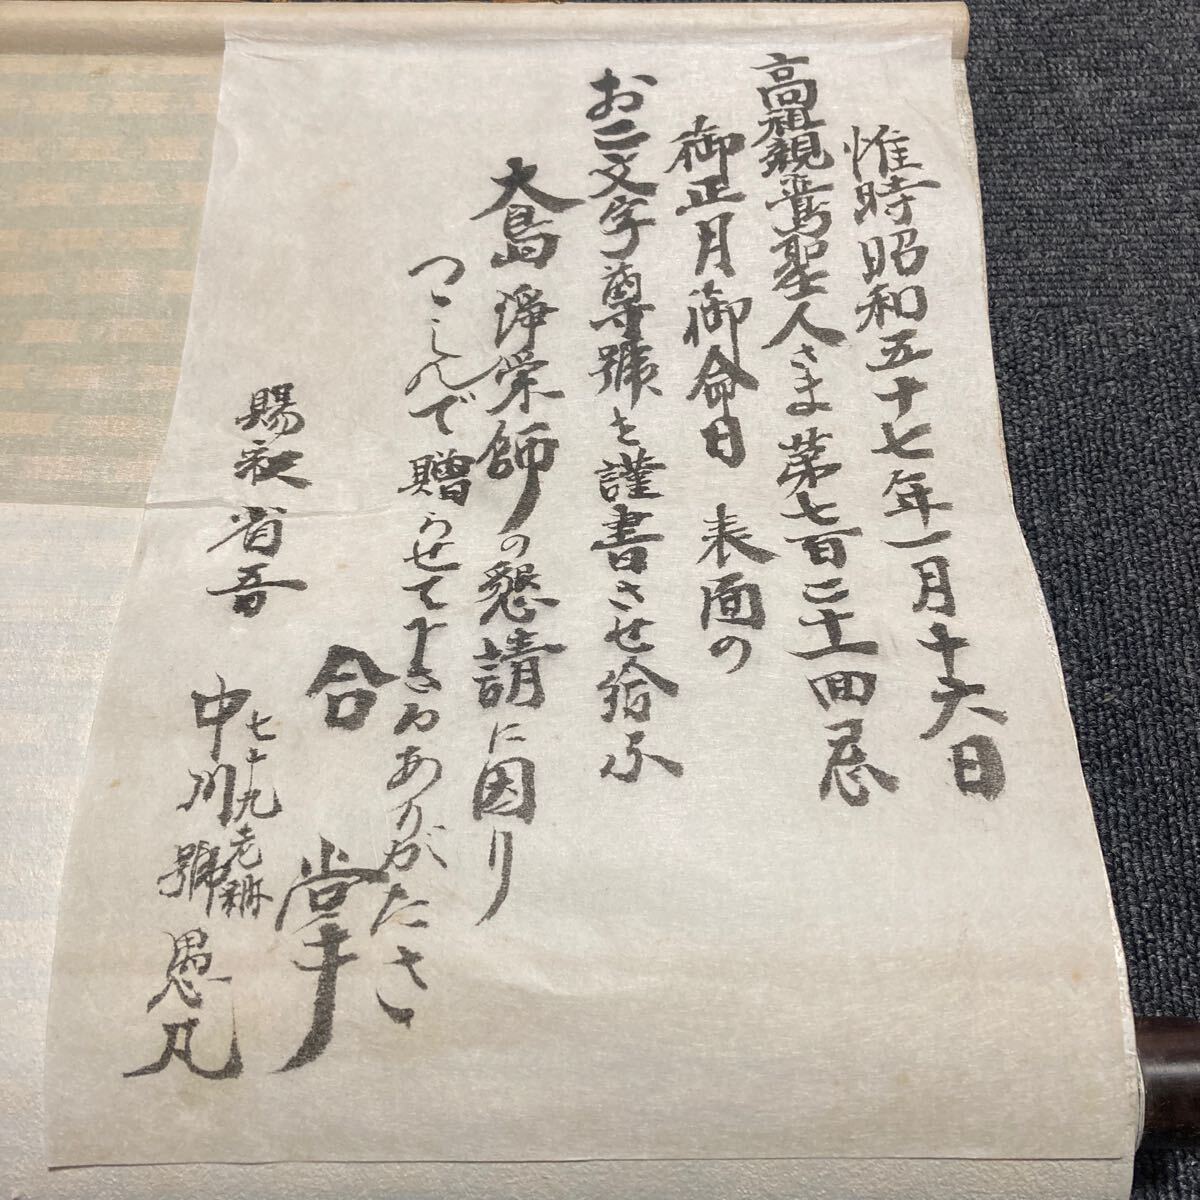 惟時昭和五十七年一月十六日
高祖親鸞聖人さま第七百二十一回忌
御正月御命日 表面の
お六字尊號を謹書させ給ふ
大島淨栄師の懇請に因り
つゝしんで贈らせて下さるありがたさ
合掌
賜釈省吾
七十九老衲
中川號愚凡